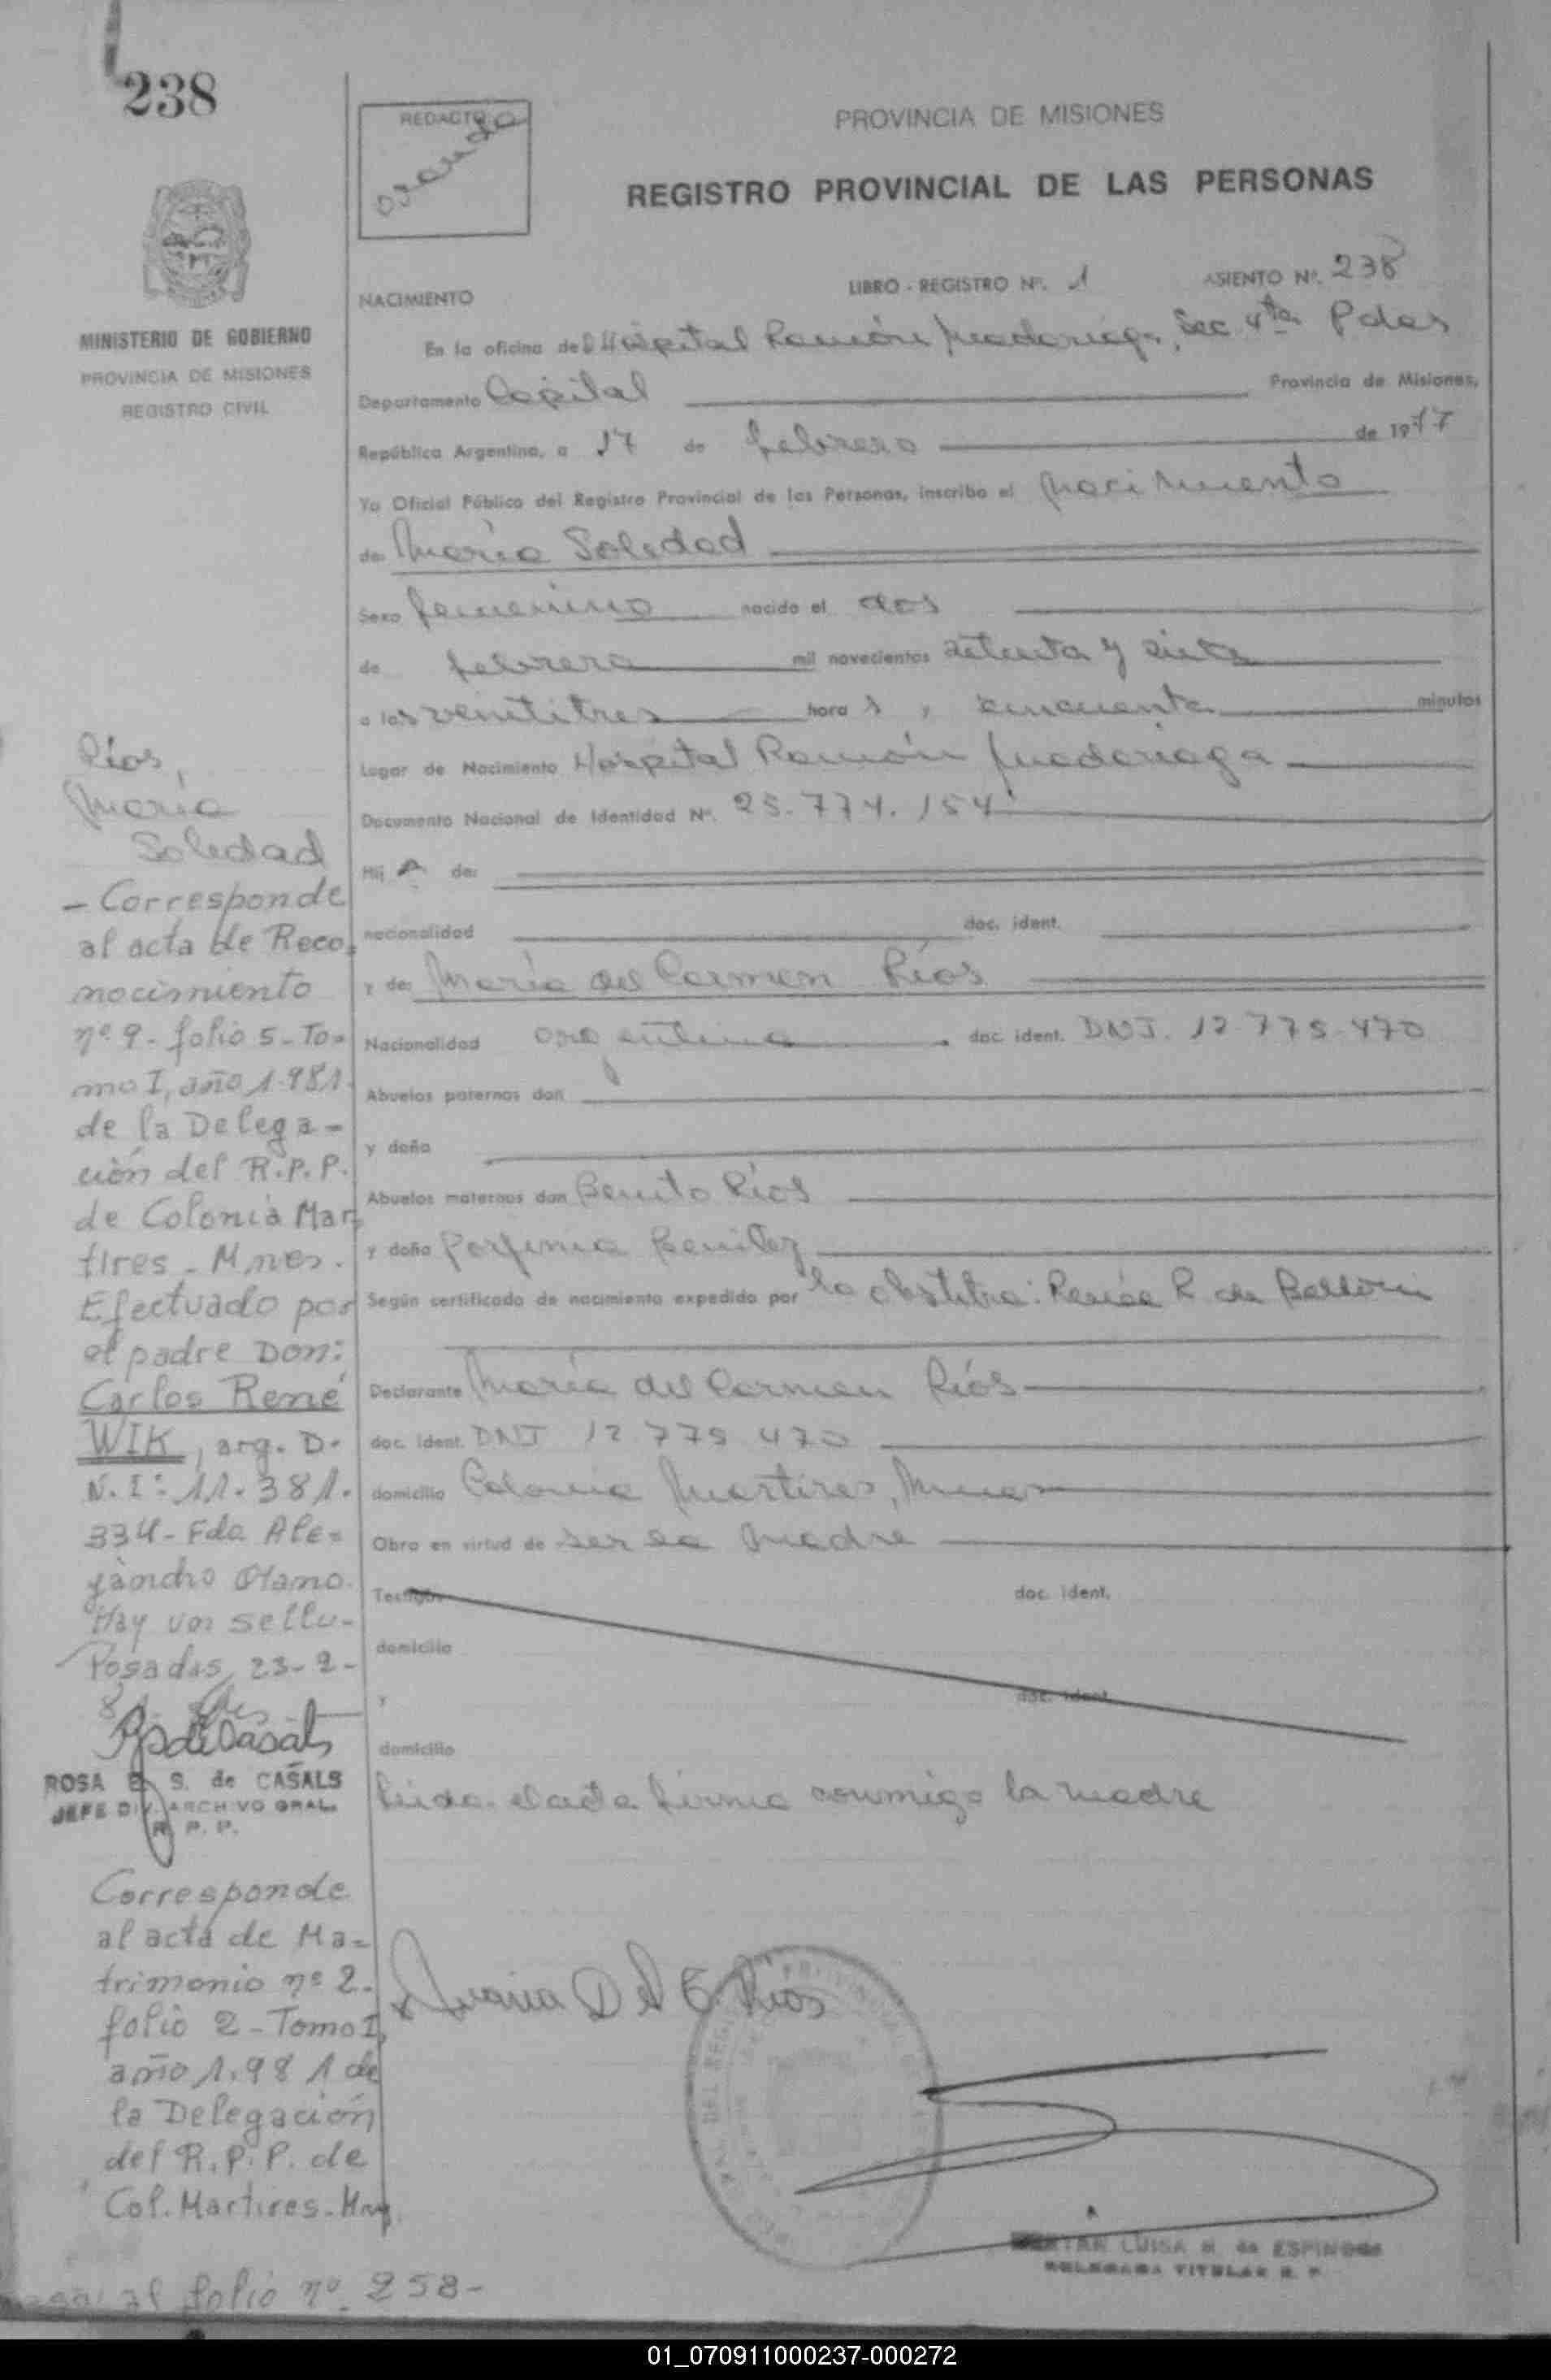 238
MINISTERIO DE GOBIERNO
PROVINCIA DE MISIONES
REGISTRO CIVIL
REDACTO
PROVINCIA DE MISIONES
REGISTRO PROVINCIAL DE LAS PERSONAS
NACIMIENTO
LIBRO - REGISTRO Nº. 1 ASIENTO Nº. 238
En la oficina del Hospital Ramón Madariaga, Sec 4ta Pdas
Departamento Capital Provincia de Misiones,
República Argentina, a 17 de febrero de 1977
Yo Oficial Público del Registro Provincial de las Personas, inscribo el nacimiento
de: María Soledad
Sexo femenino nacido el dos
de febrero mil novecientos setenta y siete
a las ventitres hora s y cincuenta minutos
Lugar de Nacimiento Hospital Ramón Madariaga
Documento Nacional de Identidad Nº. 25.774.154
Hij a de:
nacionalidad doc. ident.
y de: María del Carmen Ríos
Nacionalidad argentina doc. ident. DNI. 12 775 470
Abuelos paternos don
y doña
Abuelos maternos don Benito Ríos
y doña Benitez
Según certificado de nacimiento expedido por la obstetra: Renée R. de
Declarante María del Carmen Ríos
doc. ident. DNI 12 775 470
domicilio Colonia Martires, Mnes
Obra en virtud de ser la madre
Testigos doc. ident.
domicilio
y doc. ident.
domicilio
Leida el acta firma conmigo la madre
Maria Del C. Rios
LUISA M. de ESPINOSA
DELEGADA TITULAR R. P.
Ríos,
María
Soledad
- Corresponde
al acta de Reco-
nocimiento
nº 9 - folio 5 - To-
mo I, año 1.981.
de la Delega-
ción del R.P.P.
de Colonia Mar-
tires - Mnes.
Efectuado por
el padre Don:
Carlos René
WIK, arg. D.
N.I: 11.381.
334 - Fdo Ale-
jandro Olamo.
Hay un sello -
Posadas, 23-2-
81.
ROSA E. S. de CASALS
JEFE DIV. ARCHIVO GRAL.
R. P. P.
Corresponde
al acta de Ma-
trimonio nº 2.
folio 2 - Tomo I,
año 1.981 de
la Delegación
del R.P.P. de
Col. Martires - Mnes
al folio nº 258-
01_070911000237-000272